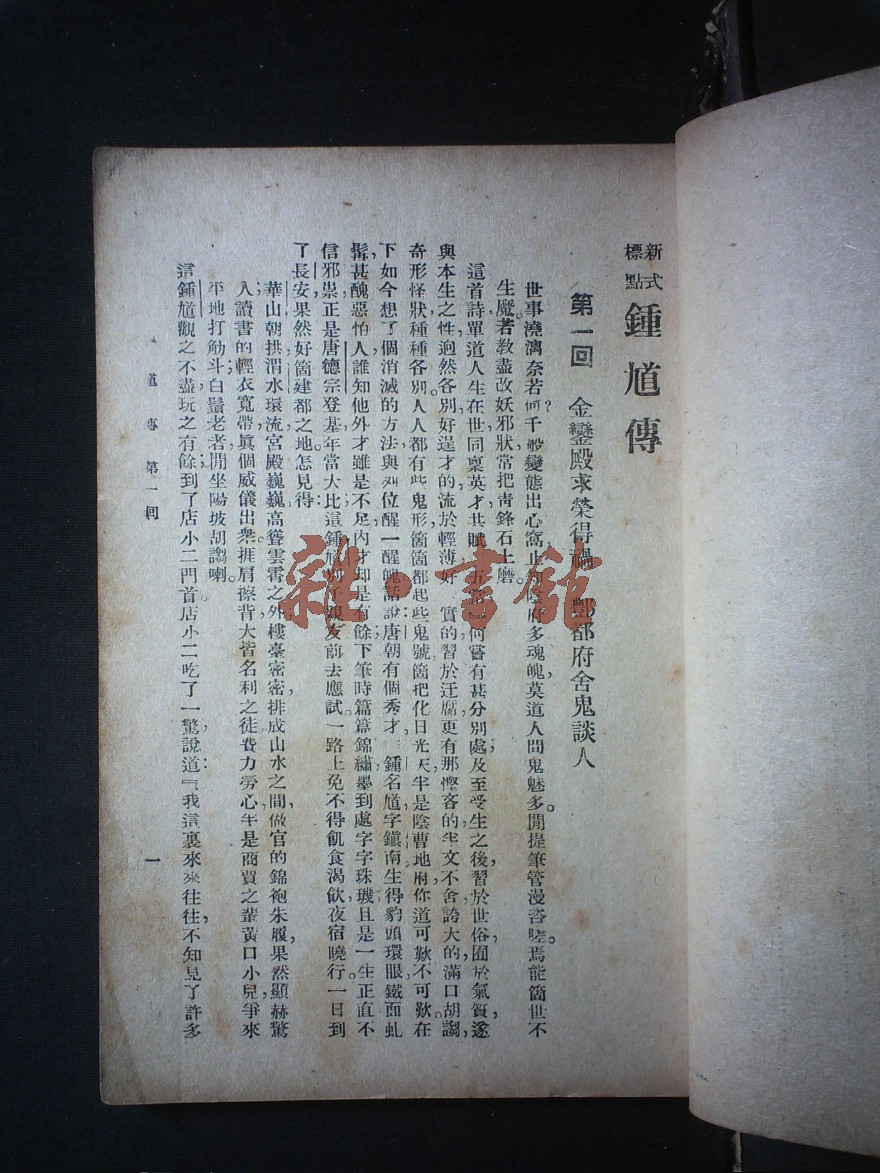 新式標點 鍾馗傳
第一回 金鑾殿求榮得禍 酆都府舍鬼談人
世事澆漓奈若何?千般變態出心窩止知陰府多魂魄,莫道人間鬼魅多。閒提筆管漫咨嗟,焉能箇世不
生魔。若教盡改妖邪狀,常把青鋒石上磨。
這首詩單道人生在世,同稟英才,共賦五常,何嘗有甚分別處,及至受生之後,習於世俗,囿於氣質,遂
與本生之性迥然各別,好逞才的流於輕薄,好 實的習於迂腐,更有那慳吝的半文不舍,誇大的滿口胡謅,
奇形怪狀,種種各別,人人都有些鬼形,箇箇都起些鬼號,箇把化日光天,半是陰曹地府,你道可歎不可歎。在
下如今想了個消滅的方法,與列位醒一醒。醜話說唐朝有個秀才, 鍾名馗字鎮南,生得豹頭環眼,鐵面虬
髯,甚醜惡怕人,誰知他外才雖是不足,內才却是有餘,下筆時篇篇錦繡,墨到處字字珠璣;且是一生正直,不
信邪祟。正是唐德宗登基年當大比,這鍾馗別了親友,前去應試,一路上免不得飢食渴飲,夜宿曉行。一日到
了長安,果然好箇建都之地,怎見得:
華山朝拱,渭水環流,宮殿巍巍,高聳雲霄之外;樓臺密密,排成山水之間,做官的錦袍朱履,果然顯赫驚
人;讀書的輕衣寬帶,眞個威儀出衆。捱肩擦背,大皆名利之徒;費力勞心,半是商賈之輩。黃口小兒,爭來
平地打觔斗;白鬚老者,閒坐陽坡胡謅喇。
這鍾馗觀之不盡,玩之有餘,到了店小二門首,店小二吃了一驚,說道:『我這裏來來往往,不知見了許多
馗 傳 第一回
一
雜·書館